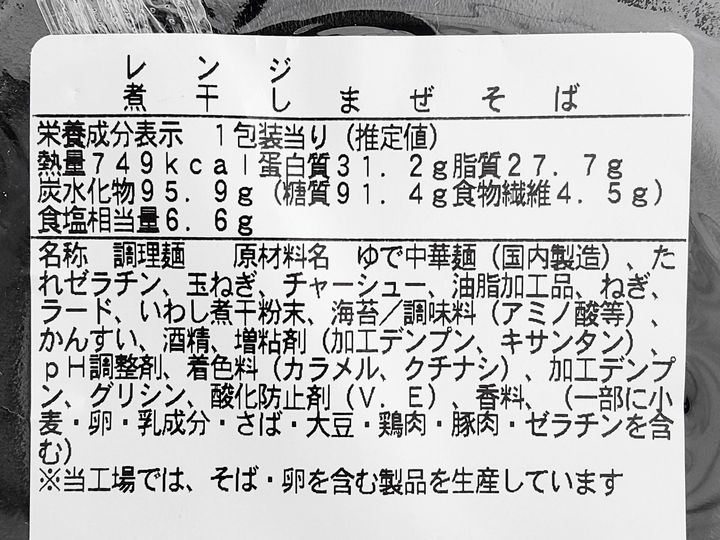 レンジ
煮干しまぜそば
栄養成分表示 1包装当り(推定値)
熱量749kcal蛋白質31.2g脂質27.7g
炭水化物95.9g(糖質91.4g食物繊維4.5g)
食塩相当量6.6g
名称 調理麺 原材料名 ゆで中華麺(国内製造)、た
れゼラチン、玉ねぎ、チャーシュー、油脂加工品、ねぎ、
ラード、いわし煮干粉末、海苔/調味料(アミノ酸等)、
かんすい、酒精、増粘剤(加工デンプン、キサンタン)、
pH調整剤、着色料(カラメル、クチナシ)、加工デンプ
ン、グリシン、酸化防止剤(V.E)、香料、(一部に小
麦・卵・乳成分・さば・大豆・鶏肉・豚肉・ゼラチンを含
む)
※当工場では、そば・卵を含む製品を生産しています